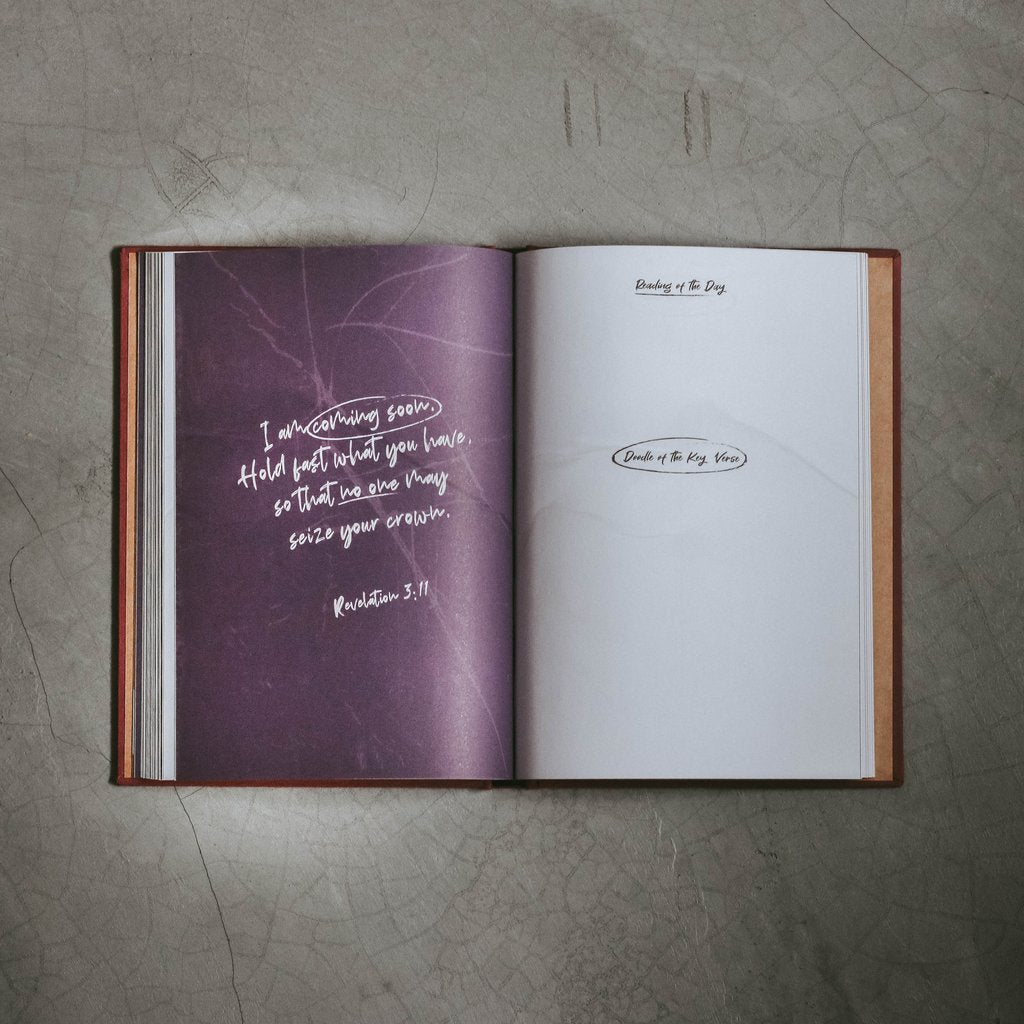 I am coming soon.
Hold fast what you have,
so that no one may
seize your crown.
Revelation 3:11
Reading of the Day
Doodle of the Key Verse